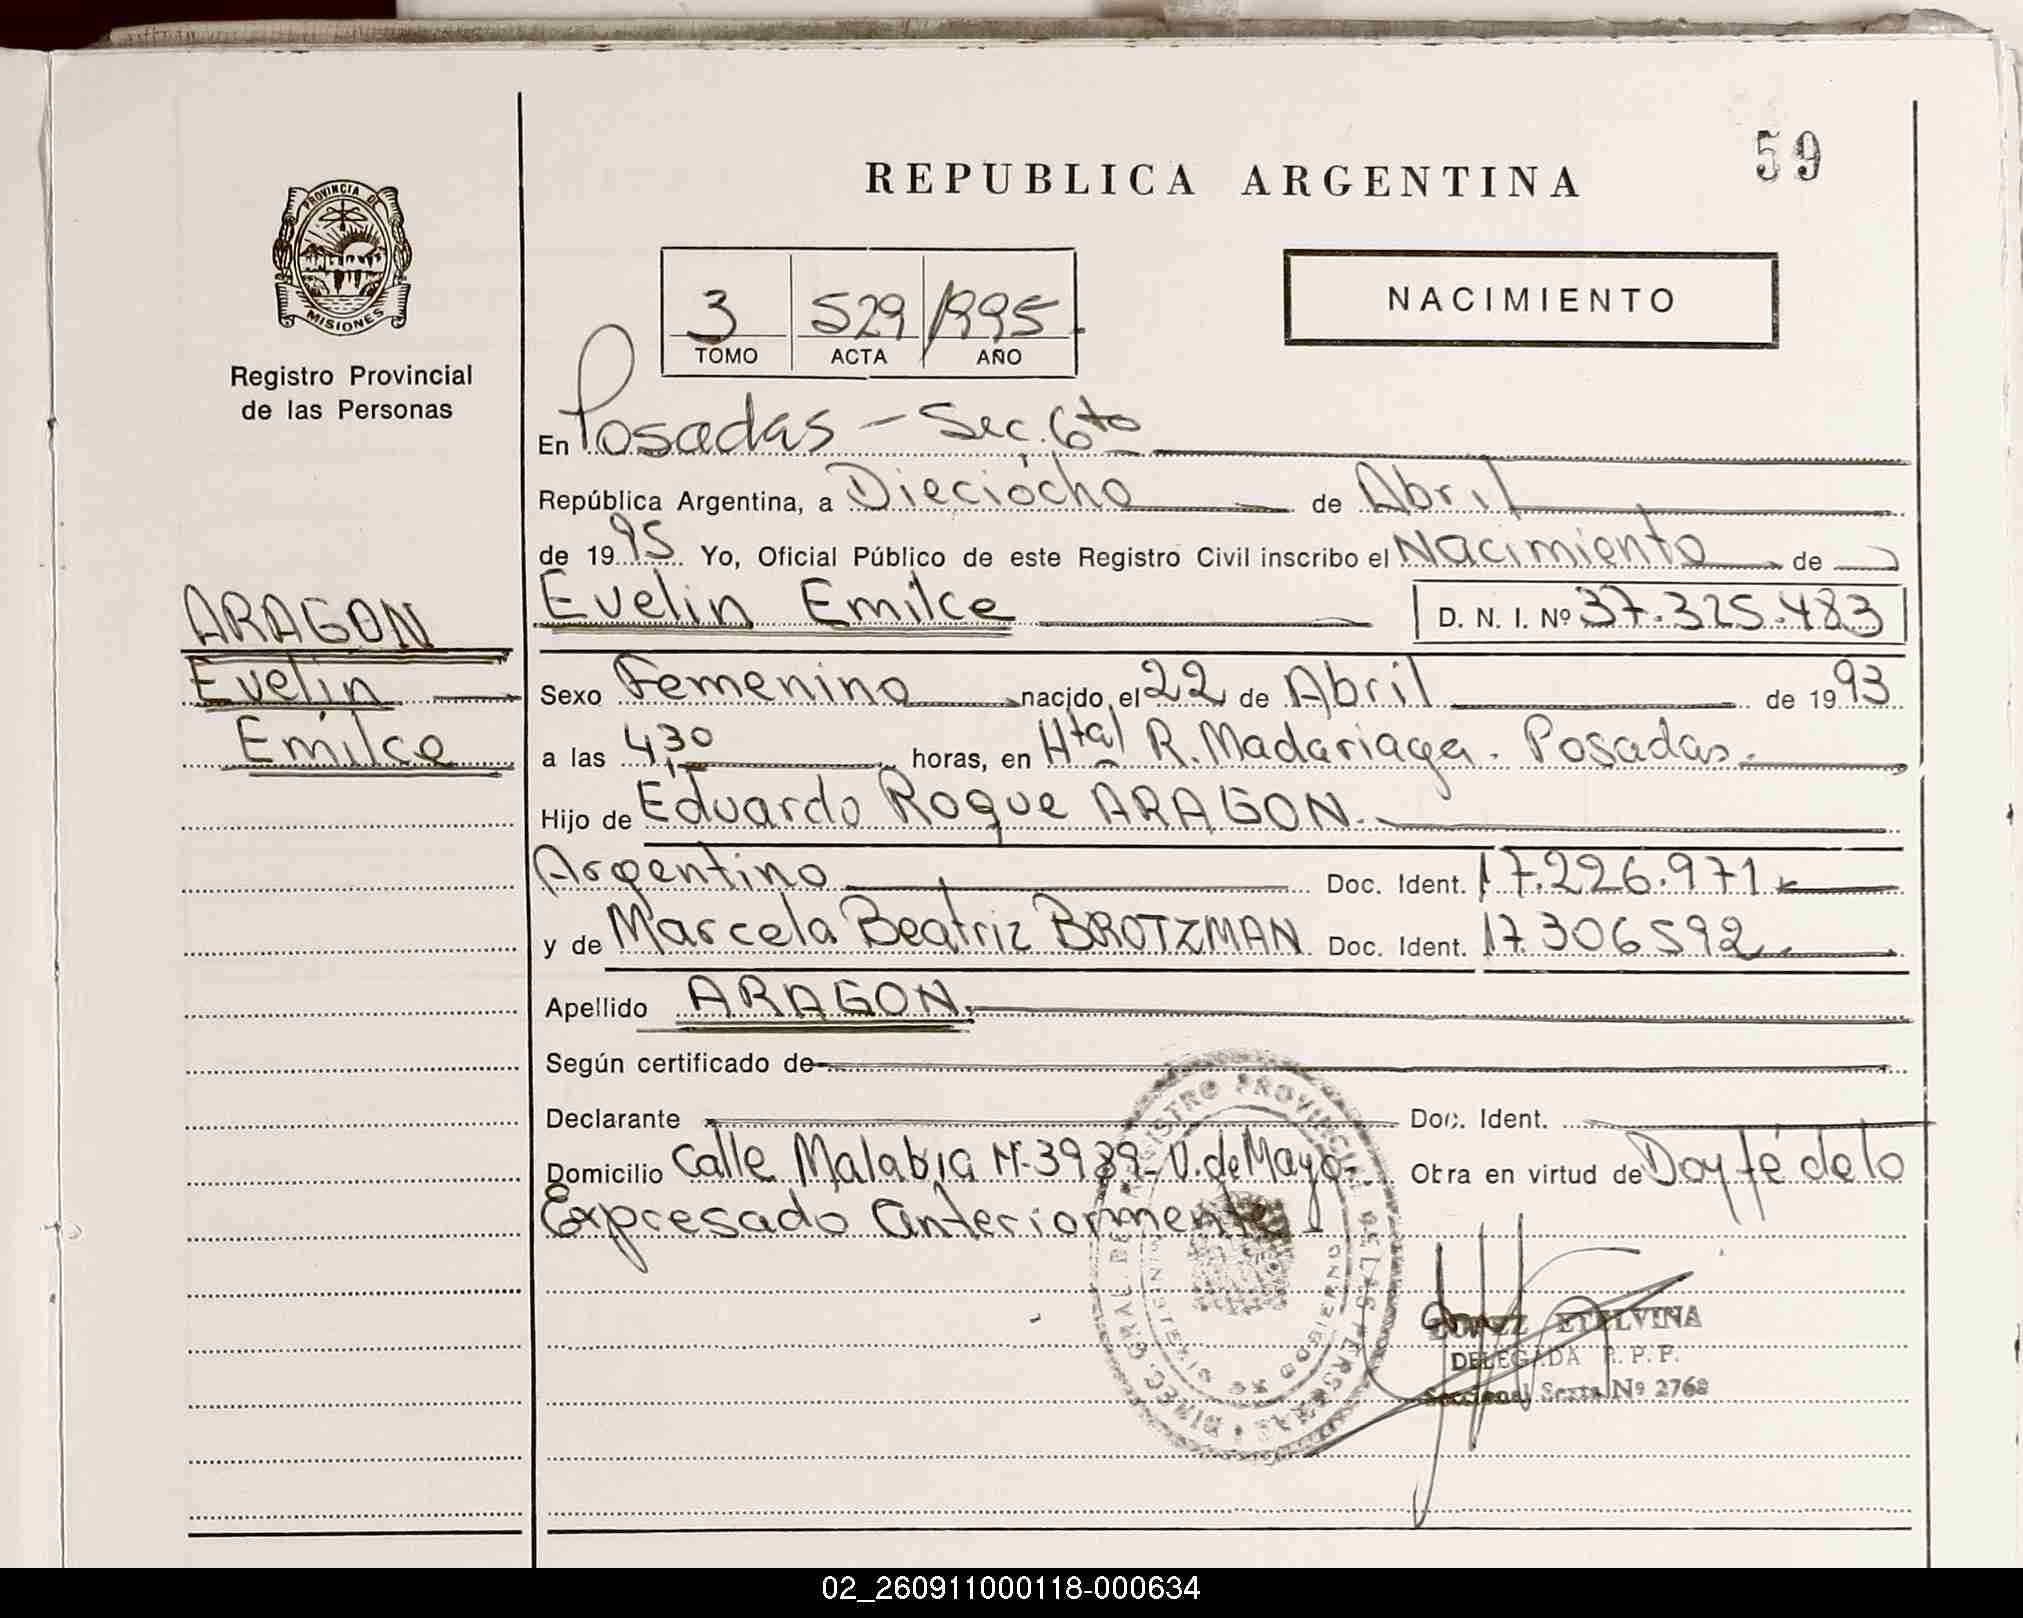 59
REPUBLICA ARGENTINA
PROVINCIA DE
MISIONES
Registro Provincial
de las Personas
3 529 1995
TOMO ACTA AÑO
NACIMIENTO
En Posadas - Sec. 6to
República Argentina, a Dieciocho de Abril
de 1995 Yo, Oficial Público de este Registro Civil inscribo el Nacimiento de
ARAGON
Evelin
Emilce
Evelin Emilce D. N. I. Nº 37.325.483
Sexo Femenino nacido el 22 de Abril de 1993
a las 4,30 horas, en Htal R. Madariaga. Posadas.
Hijo de Eduardo Roque ARAGON.
Argentino Doc. Ident. 17.226.971
y de Marcela Beatriz BROTZMAN Doc. Ident. 17.306592
Apellido ARAGON.
Según certificado de
Declarante Doc. Ident.
Domicilio Calle Malabia Nº 3989- V. de Mayo- Otra en virtud de Doy fé de lo
Expresado anteriormente
DIREC. GRAL. DEL REGISTRO PROVINCIAL DE LAS PERSONAS
MINISTERIO DE GOBIERNO
ETELVINA
DELEGADA R. P. P.
Seccional Sexta Nº 2768
02_260911000118-000634